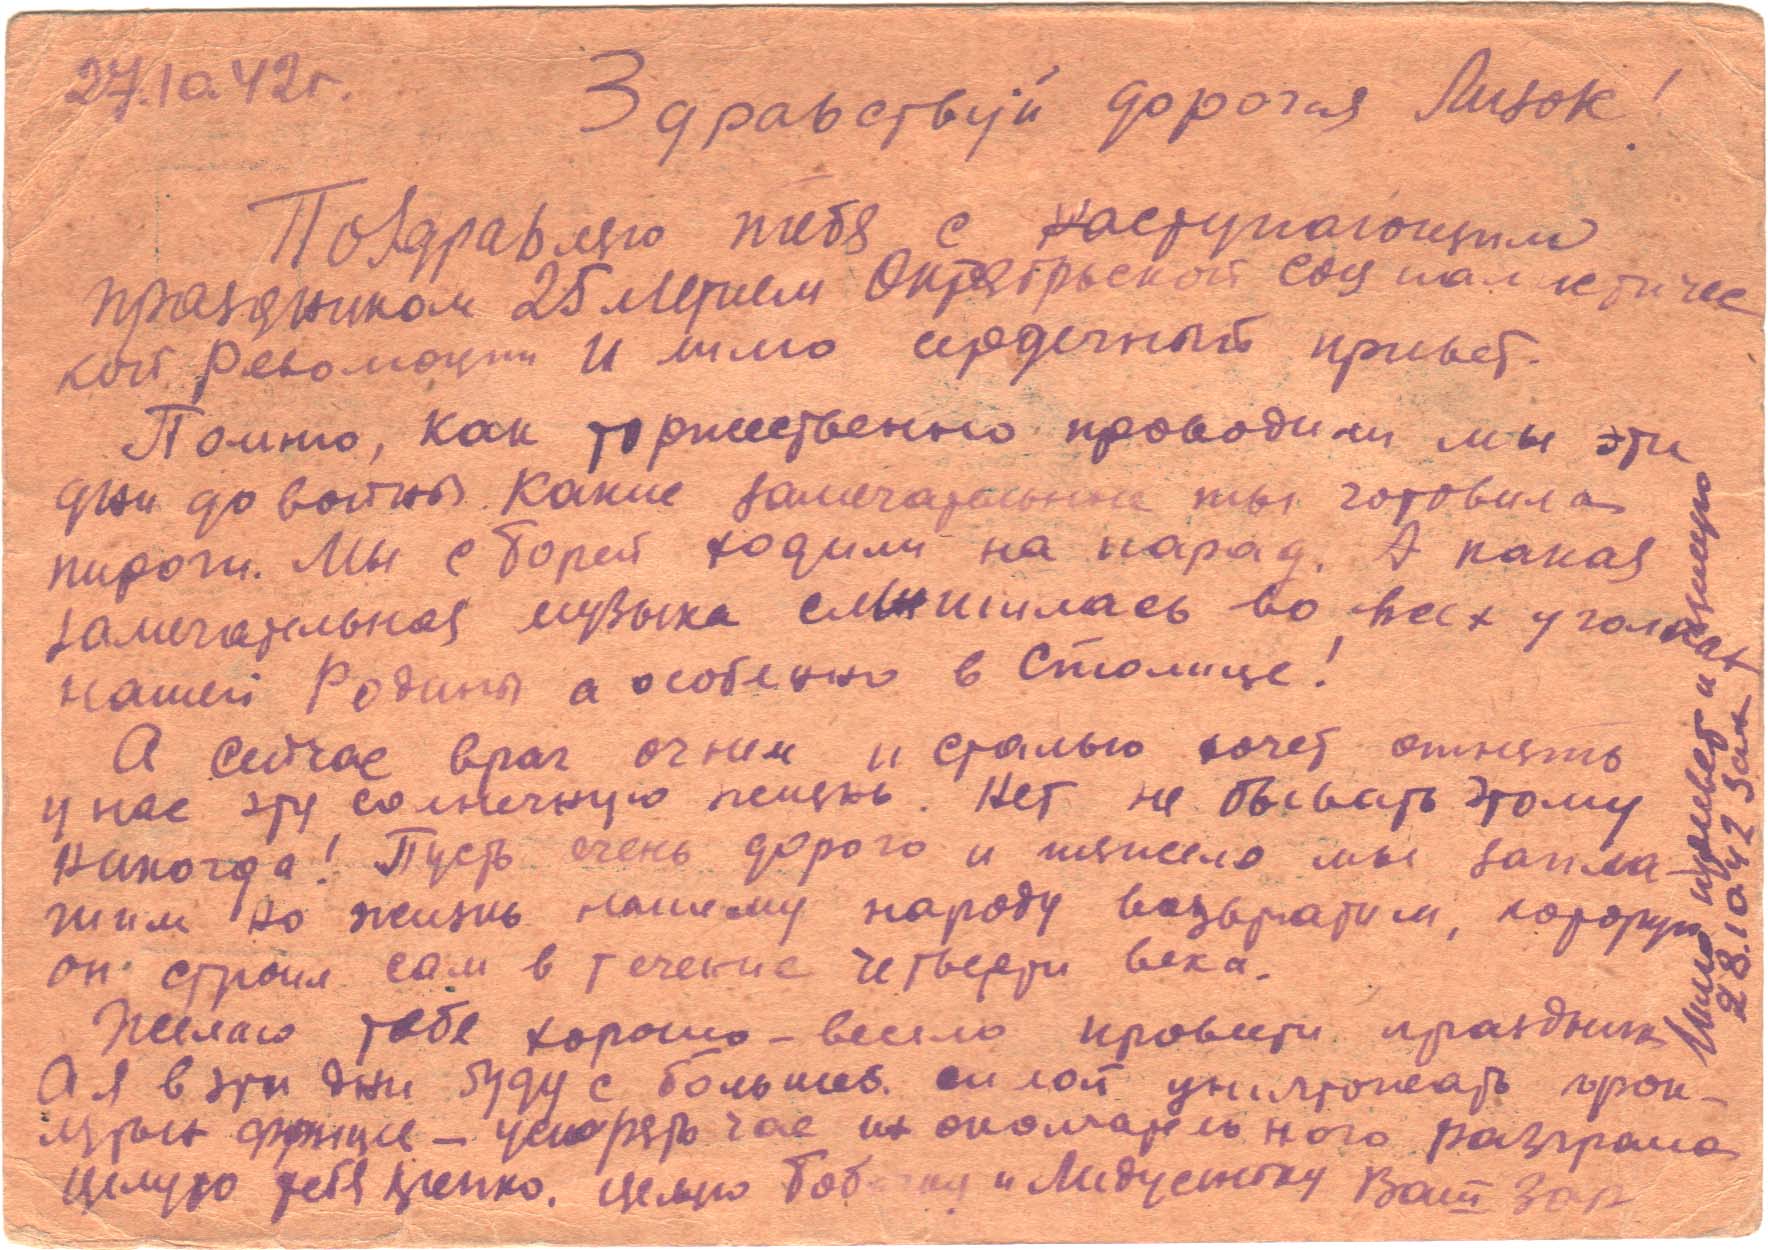 27.10.42г.
Здравствуй дорогая Лизок!
Поздравляю тебя с наступающим
праздником 25летием Октябрьской социалистичес
кой революции и шлю сердечный привет.
Помню, как торжественно проводили мы эти
дни до войны. Какие замечательные ты готовила
пироги. Мы с Борей ходили на парад. А какая
замечательная музыка слышилась во всех уголках
нашей Родины а особенно в Столице!
А сейчас враг огнем и сталью хочет отнять
у нас эту солнечную жизнь. Нет не бывать этому
никогда! Пусть очень дорого и тяжело мы запла-
тим но жизнь нашему народу возвратим, которую
он строил сам в течение четверти века.
Желаю тебе хорошо – весело провести праздник
А я в эти дни буду с большей силой уничтожать прок-
лятых фрицев – ускорять час их окончательного разгрома
Целую тебя крепко. Целую Бобочку и Лидусеньку Ваш Зар
Шлю привет и
28.10.42